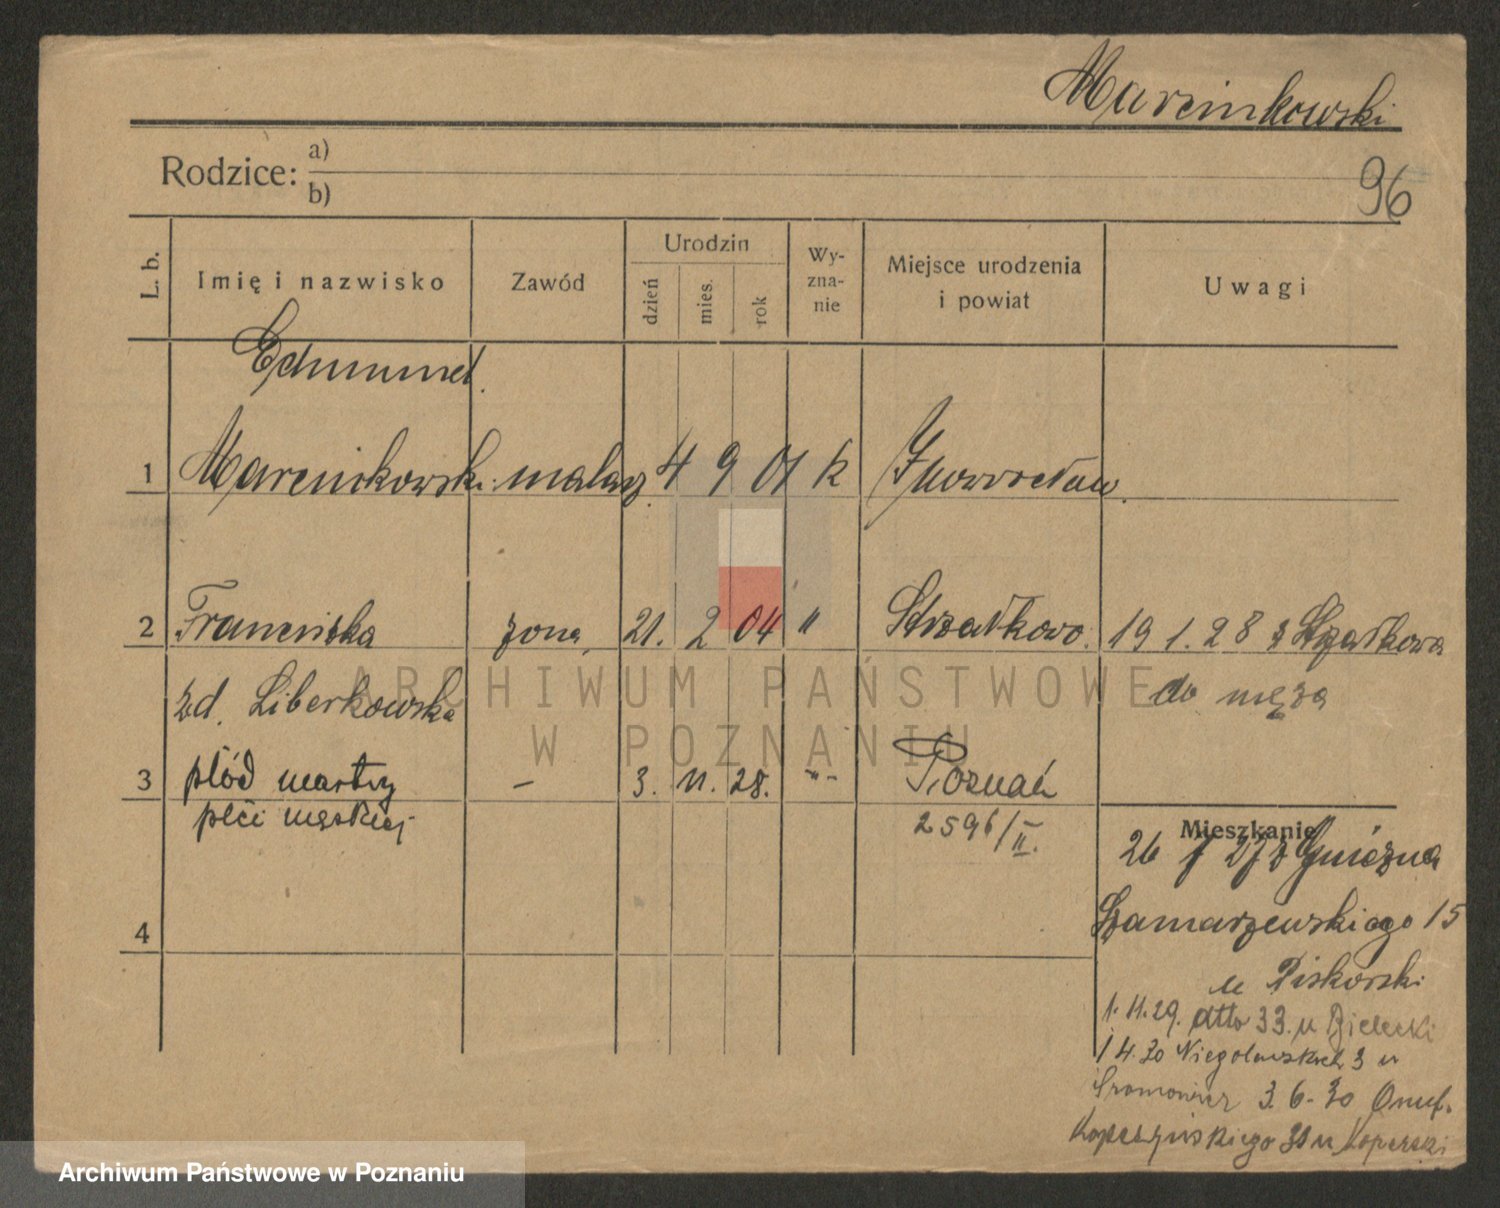 Marcinkowski
96
Rodzice: a)
b)
L. b.
Imię i nazwisko
Zawód
Urodzin
dzień
mies.
rok
Wy-
zna-
nie
Miejsce urodzenia
i powiat
Uwagi
Edmund
1 Marcinkowski malarz 4 9 01 k Inowrocław
2 Franciszka żona 21. 2 04 " Strzałkowo. 19 1. 28 z Strzałkowa
zd. Liberkowska do męża
3 płód martwy – 3. 11. 28. -"- Poznań
płci męskiej 2596/II.
Mieszkanie
26 f 27 z Gniezna
4
Szamarzewskiego 15
u Piskorski
1.11.29. dtto 33. u Bielecki
1 4.30 Niegolewskich 3 u
3.6.30 Onuf.
Kopczyńskiego u
ARCHIWUM PAŃSTWOWE
W POZNANIU
Archiwum Państwowe w Poznaniu